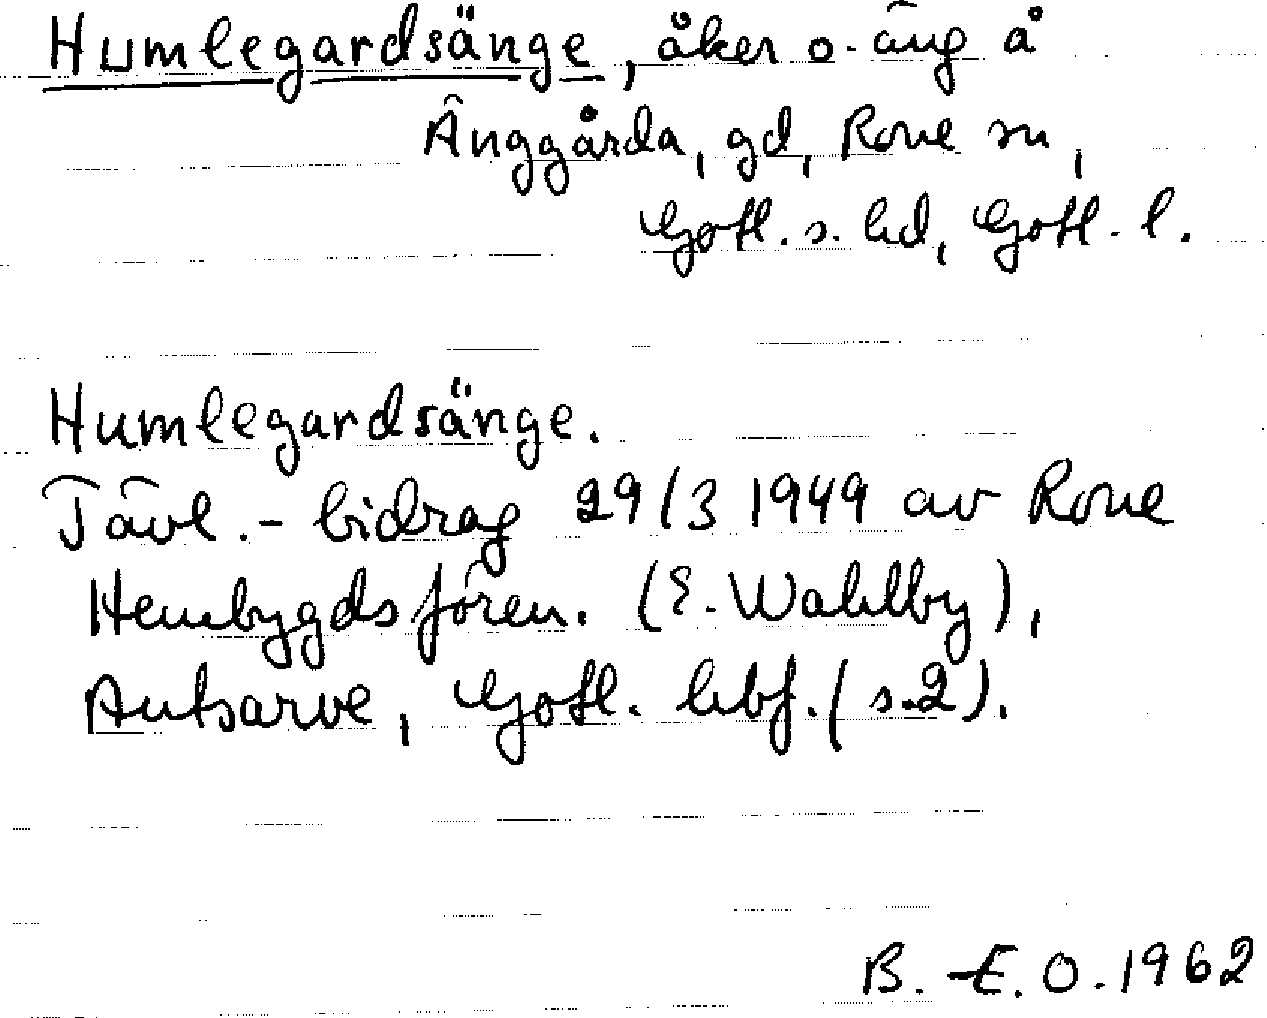 Humlegardsänge, åker o. äng å
Änggårda, gd, Rone sn,
Gotl. s. hd, Gotl. l.
Humlegardsänge.
Tävl.-bidrag 29/3 1949 av Rone
Hembygdsfören. (E. Wahlby),
Autsarve, Gotl. hbf. (s.2).
B.-E.O. 1962